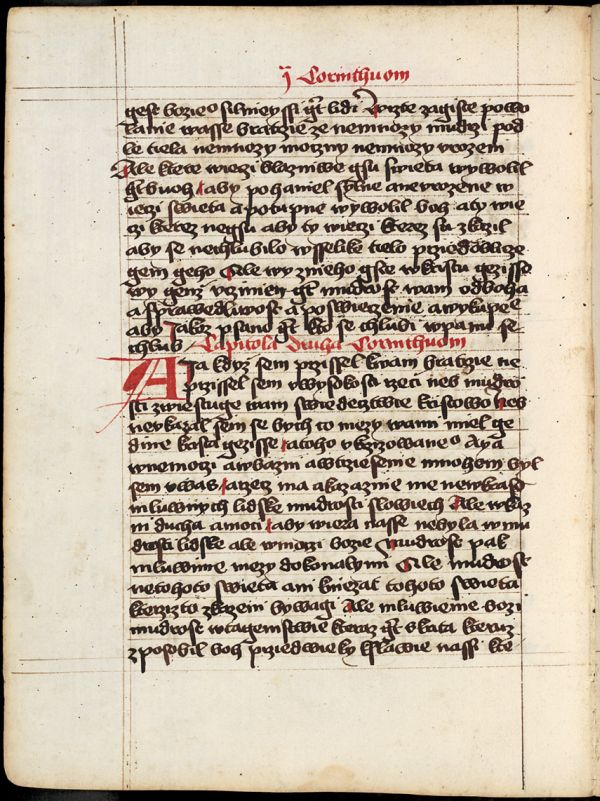 j Corinthuom
gest bozie° silniegssi gt lidi wizte zagiste powo
lanie wasse bratrzie ze nemnozy mudrzi pod
le tiela nemnozy mocziny nemnozy vrozeni
Ale ktere wieczi blazniwe gsu swieta wywolil
gt buoh aby pohaniel silne a nevrozene w
ieczi swieta a potupne wywolil boh a ty wie
czi kterez negsu aby ty wieczi kterez su zkazil
aby se nechlubilo wsselike tielo przed obliczie
gem geho Ale wy z nieho gste w kristu gezisse
wy genz vczinien gt mudrost nam od boha
a sprawedlnost a poswieczenie a wykupe
abo Jakoz psano gt kto se chlubi w panu se
chlub Capitola druha Corinthuom
A Ja kdyz sem przissel k wam bratrzie ne
przissel sem v wysokosti rzeci neb mudro
sti zwiestuge wam swiedecztwie kristowo neb
neukazal sem se bych to mezy wami miel ge
dine krista gezisse a toho vkrzizowane° A ya
w nemoczi a w bazni a w trzieseni mnohem byl
sem v was a rzecz ma a kazanie me ne w kaso
mluwnych lidske mudrosti slowiech Ale w kaza
ni ducha a moci aby wiera nasse nebyla w mu
drosti lidske ale w moczi bozie mudrost pak
mluwime mezy dokonalymi Ale mudrost
ne tohoto swieta ani kniezat tohoto swieta
kterzizto zkazeni bywagi Ale mluwieme bozi
mudrost w tagemstwie kteraz gt skrita kteruz
zposobil boh przied wieky k slawie nassi kte